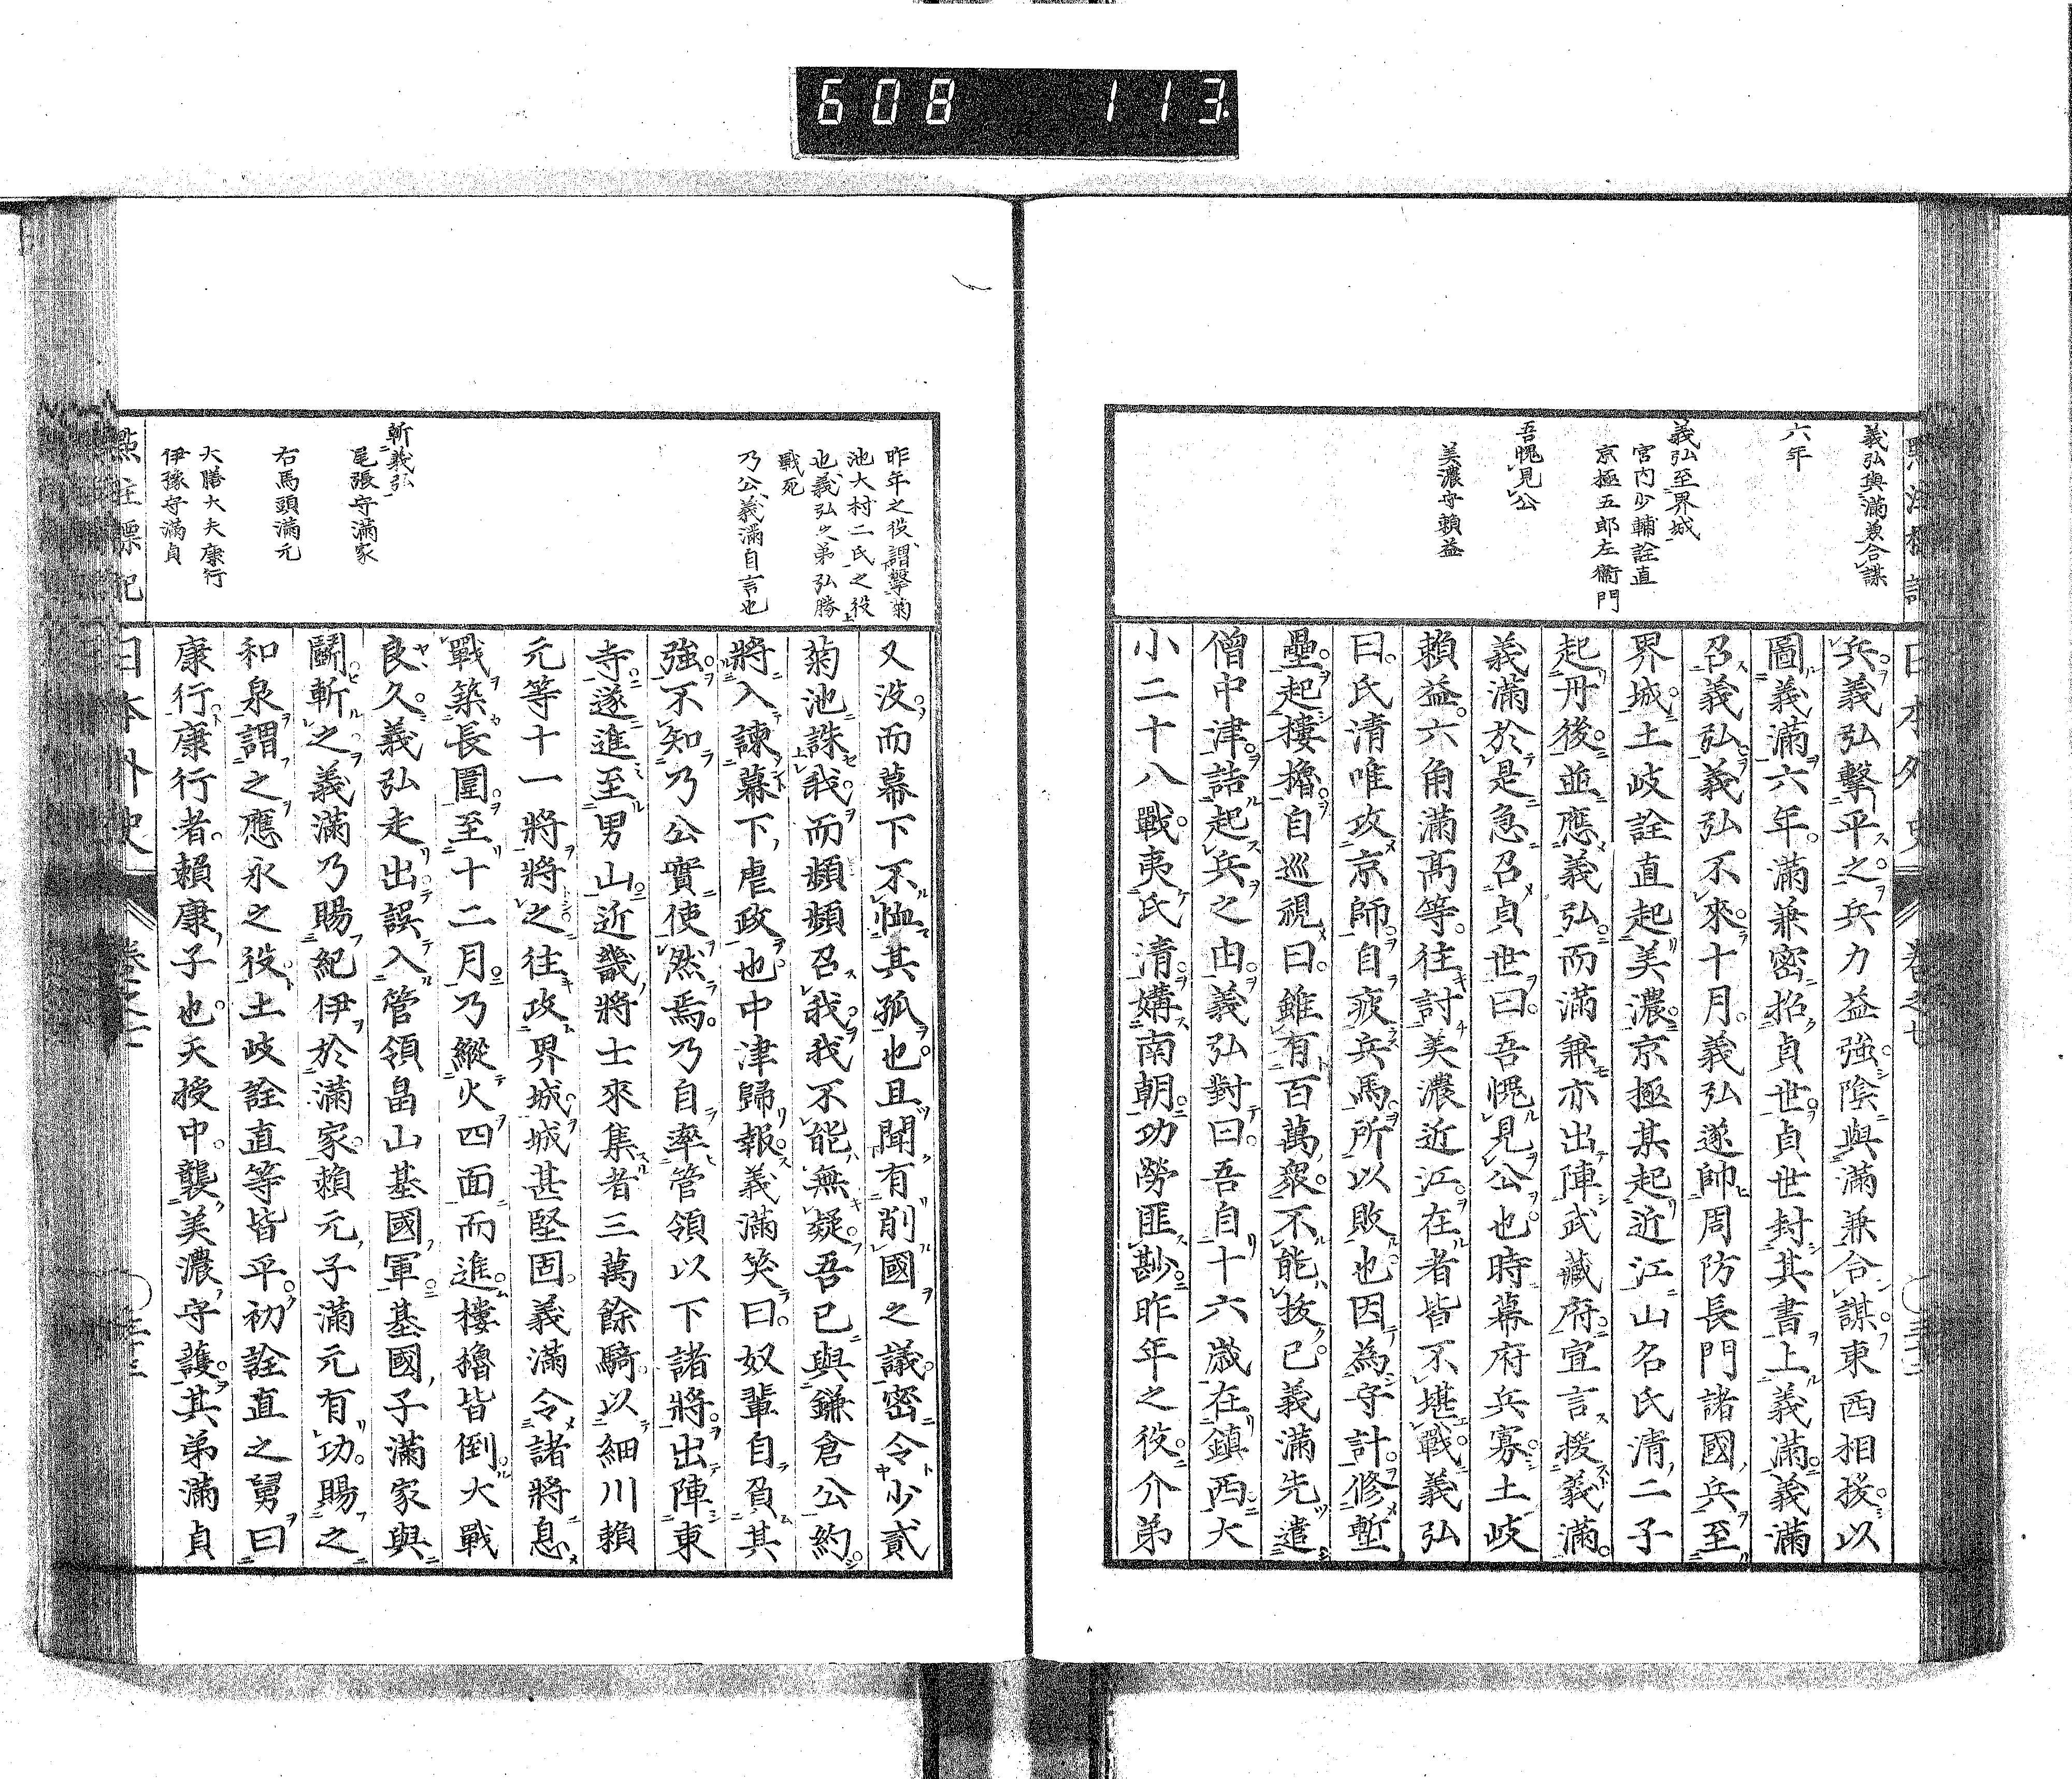 608 113
義弘與滿兼合謀
六年
義弘至界城
宮內少輔詮直
京極五郎左衞門
吾愧見公
美濃守賴益
日本外史 卷之七
兵義弘擊平之兵力益強陰與滿兼合謀東西相援以
圖義滿六年滿兼密招貞世貞世封其書上義滿義滿
召義弘義弘不來十月義弘遂帥周防長門諸國兵至
界城土岐詮直起美濃京極某起近江山名氏清二子
起丹後並應義弘而滿兼亦出陣武藏府宣言援義滿
義滿於是急召貞世曰吾愧見公也時幕府兵寡土岐
賴益六角滿高等往討美濃近江在者皆不堪戰義弘
曰氏清唯攻京師自疲兵馬所以敗也因為守計修塹
壘起樓櫓自巡視曰雖有百萬衆不能拔已義滿先遣
僧中津詰起兵之由義弘對曰吾自十六歲在鎮西大
小二十八戰夷氏清媾南朝功勞匪尠昨年之役介弟
昨年之役謂擊菊
池大村二氏之役
也義弘之弟弘勝
戰死
乃公義滿自言也
斬義弘
尾張守滿家
右馬頭滿元
大膳大夫康行
伊豫守滿貞
又沒而幕下不恤其孤也且聞有削國之議密令少貳
菊池誅我而頻頻召我我不能無疑吾已與鎌倉公約
將入諫幕下虐政也中津歸報義滿笑曰奴輩自負其
強不知乃公實使然焉乃自率管領以下諸將出陣東
寺遂進至男山近畿將士來集者三萬餘騎以細川賴
元等十一將將之往攻界城城甚堅固義滿令諸將息
戰築長圍至十二月乃縱火四面而進樓櫓皆倒大戰
良久義弘走出誤入管領畠山基國軍基國子滿家與
鬭斬之義滿乃賜紀伊於滿家賴元子滿元有功賜之
和泉謂之應永之役土岐詮直等皆平初詮直之舅曰
康行康行者賴康子也天授中襲美濃守護其弟滿貞
點註標記
日本外史